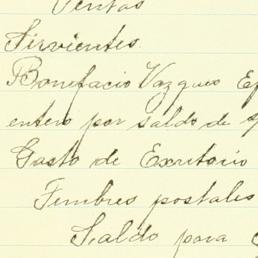 Ventas
Sirvientes
Bonefacio Vazques
entero por saldo de s
Gasto de Escritorio
Timbres postales
Saldo para